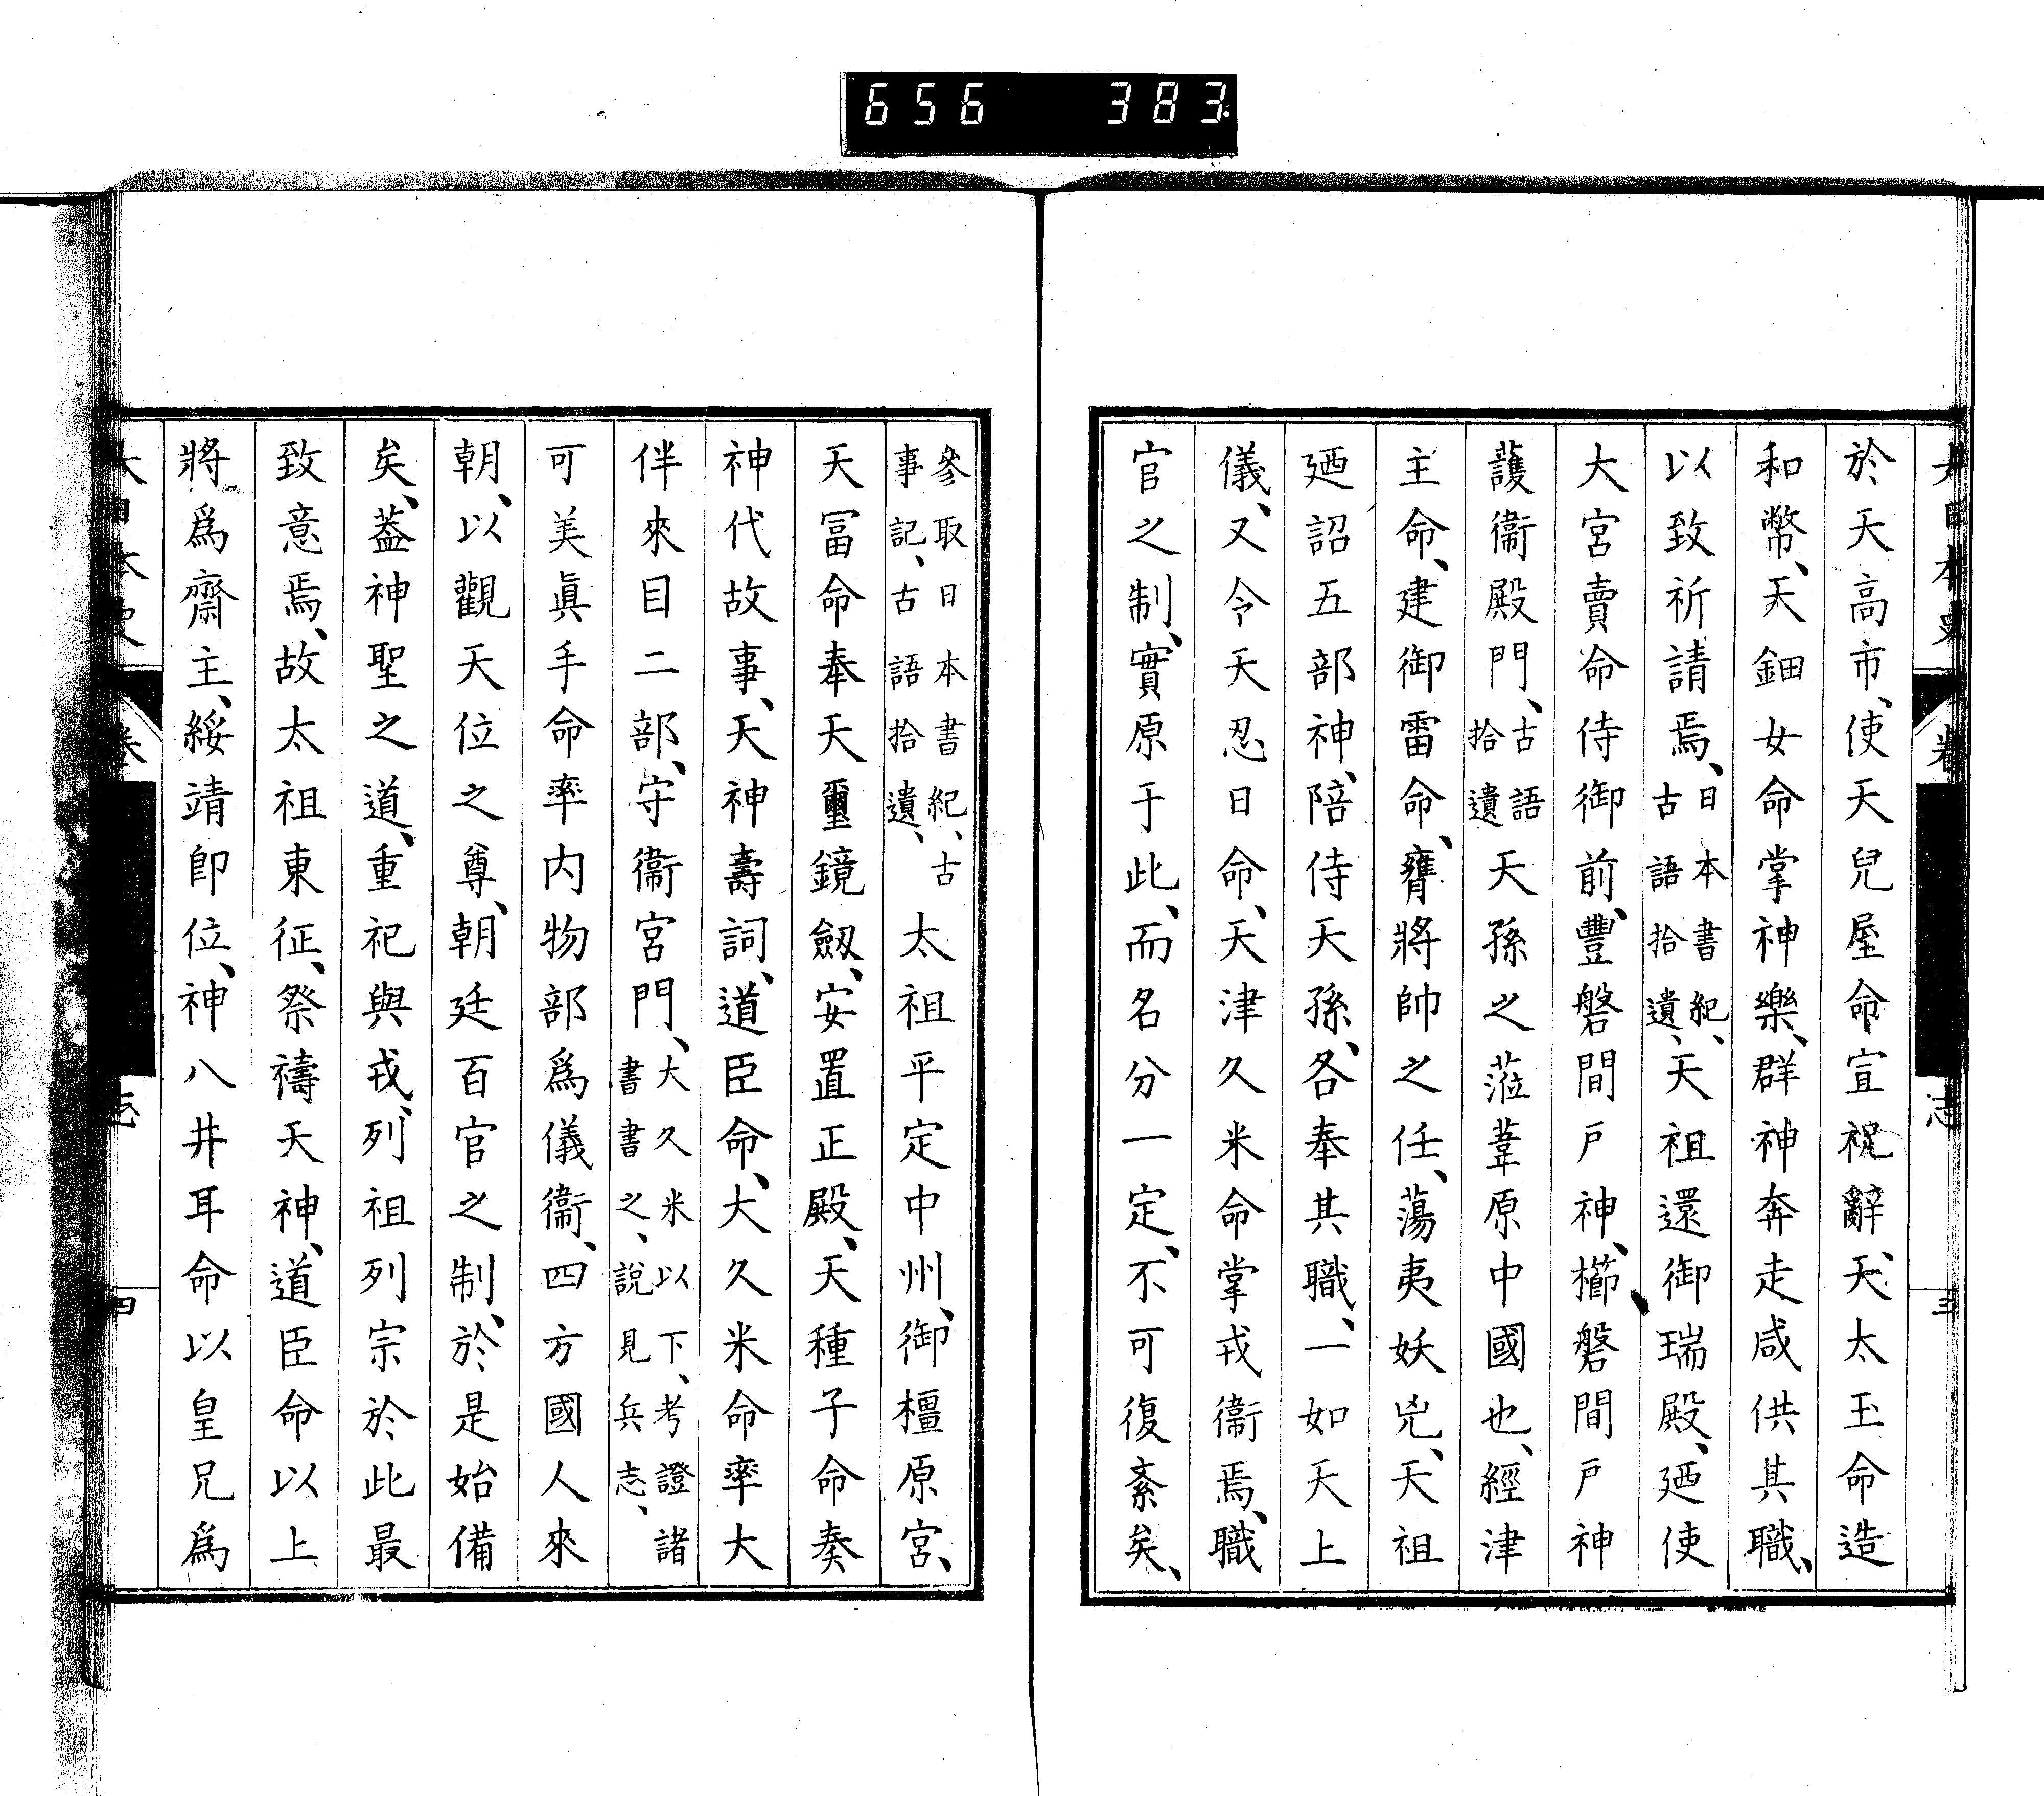 656 383
大日本史 卷 志 三
於天高市、使天兒屋命宣祝辭、天太玉命造
和幣、天鈿女命掌神樂、群神奔走咸供其職、
以致祈請焉、日本書紀、古語拾遺、天祖還御瑞殿、廼使
大宮賣命侍御前、豐磐間戸神、櫛磐間戸神
護衞殿門、古語拾遺天孫之蒞葦原中國也、經津
主命、建御雷命、膺將帥之任、蕩夷妖兇、天祖
廼詔五部神、陪侍天孫、各奉其職、一如天上
儀、又令天忍日命、天津久米命掌戎衞焉、職
官之制、實原于此、而名分一定、不可復紊矣、
參取日本書紀、古事記、古語拾遺、太祖平定中州、御橿原宮、
天冨命奉天璽鏡劔、安置正殿、天種子命奏
神代故事、天神壽詞、道臣命、大久米命率大
伴來目二部、守衞宮門、大久米以下、考證諸書書之、説見兵志、
可美眞手命率内物部爲儀衞、四方國人來
朝、以觀天位之尊、朝廷百官之制、於是始備
矣、葢神聖之道、重祀與戎、列祖列宗於此最
致意焉、故太祖東征、祭禱天神、道臣命以上
將爲齋主、綏靖卽位、神八井耳命以皇兄爲
大日本史 卷 志 四